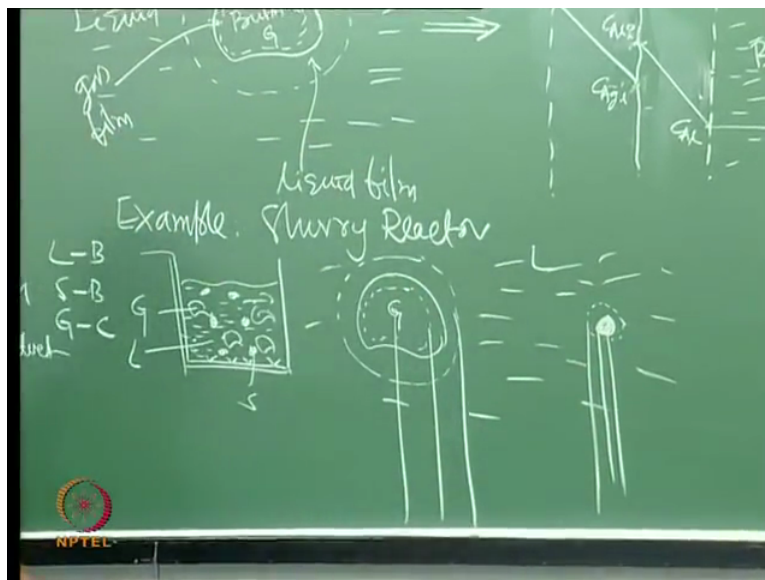 Liquid
Bulk
G
gas
film
Liquid film
CAgi
CAl
Example: Slurry Reactor
L-B
S-B
G-C
G
L
S
G
L
NPTEL